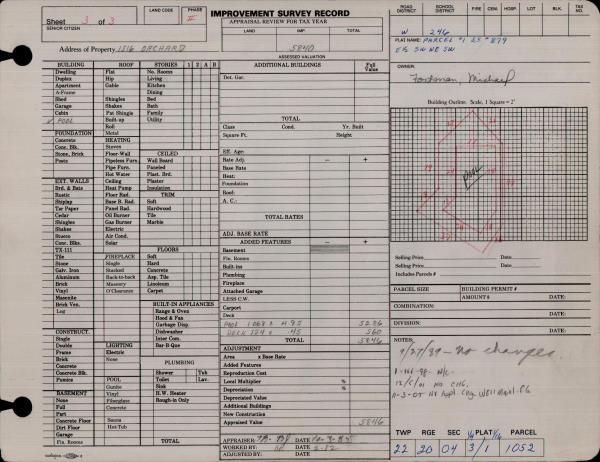 Sheet 3 of 3
SENIOR CITIZEN
LAND CODE
PHASE
II
IMPROVEMENT SURVEY RECORD
APPRAISAL REVIEW FOR TAX YEAR
LAND IMP. TOTAL
5840
ASSESSED VALUATION
Address of Property 1516 ORCHARD
ROAD DISTRICT SCHOOL DISTRICT FIRE CEM. HOSP. LOT BLK. TAX NO.
W 246
PLAT NAME: PARCEL #1 SS #879
E½ SW NE SW
OWNER:
Building Outline. Scale, 1 Square = 2'
POOL
Selling Price Date:
Selling Price Date:
Includes Parcels #
PARCEL SIZE BUILDING PERMIT #
AMOUNT $ DATE:
COMBINATION:
DATE:
DIVISION:
DATE:
NOTES
9/27/89 - No changes.
12/5/01 NO CHG.
TWP RGE SEC ¼ PLAT 1/16 PARCEL
22 20 04 3/1 1052
BUILDING ROOF STORIES 1 2 A B
Dwelling Flat No. Rooms
Duplex Hip Living
Apartment Gable Kitchen
A-Frame Dining
Shed Shingles Bed
Garage Shakes Bath
Cabin Pat Shingle Family
✓ POOL Built-up Utility
Roll
FOUNDATION Metal
Concrete HEATING
Conc. Blk. Stoves CEILED
Stone, Brick Floor-Wall Wall Board
Posts Pipeless Furn. Paneled
Pipe Furn. Plast. Brd.
Hot Water Plaster
EXT. WALLS Ceiling Insulation
Brd. & Bats Heat Pump TRIM
Rustic Floor Rad. Soft
Shiplap Base B. Rad. Hardwood
Tar Paper Panel Rad. Tile
Cedar Oil Burner Marble
Shingles Gas Burner
Shakes Electric
Stucco Air Cond.
Conc. Blks. Solar
TX-111 FLOORS
Tile FIREPLACE Soft
Stone Single Hard
Galv. Iron Stacked Concrete
Aluminum Back-to-back Asp. Tile
Brick Masonry Linoleum
Vinyl O'Clearance Carpet
Masonite
Brick Ven. BUILT-IN APPLIANCES
Log Range & Oven
Hood & Fan
Garbage Disp.
CONSTRUCT. Dishwasher
Single Inter Com.
Double LIGHTING Bar-B-Que
Frame Electric
Brick None PLUMBING
Concrete
Concrete Blk. Shower Tub
Pumice POOL Toilet Lav.
Gunite Sink
BASEMENT Vinyl H.W. Heater
None Fiberglass Rough-in Only
Full Concrete
Part
Concrete Floor Sauna
Dirt Floor Hot-Tub
Garage
Fin. Rooms TOTAL
ADDITIONAL BUILDINGS Full Value
Det. Gar.
TOTAL
Class Cond. Yr. Built
Square Ft. Height
Eff. Age:
Rate Adj. - +
Base Rate
Heat:
Foundation
Roof:
A. C.:
TOTAL RATES
ADJ. BASE RATE
ADDED FEATURES - +
Basement
Fin. Rooms
Built-ins
Plumbing
Fireplace
Attached Garage
LESS C.W.
Carport
Deck
POOL 1068 @ 4.95 5286
DECK 124 @ .45 560
TOTAL 5846
ADJUSTMENT
Area x Base Rate
Added Features
Reproduction Cost
Local Multiplier %
Depreciation %
Depreciated Value
Additional Buildings
New Construction
Appraised Value 5846
APPRAISER DATE
WORKED BY: DATE 2-82
ADJUSTED BY: DATE: